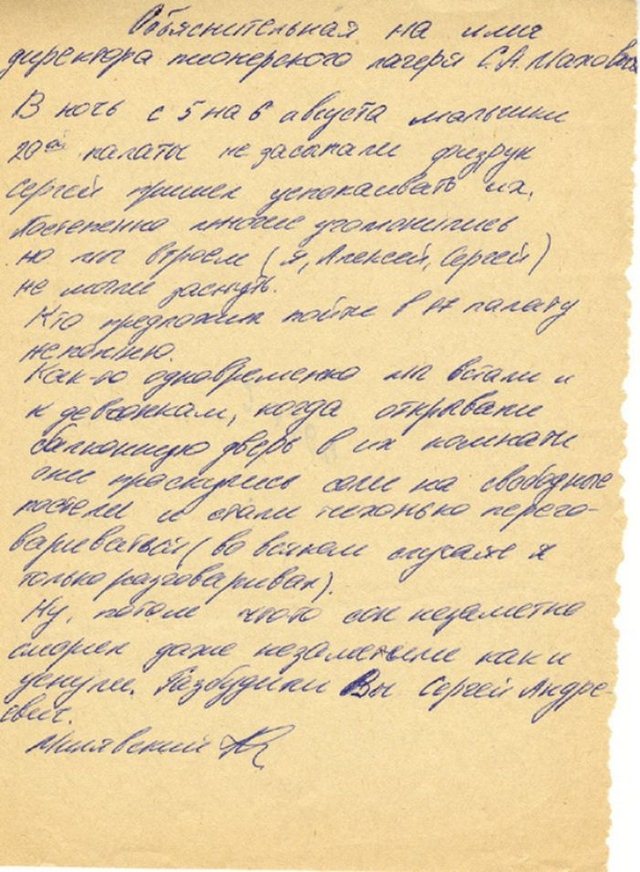 Объяснительная на имя
директора пионерского лагеря С.А. Махов
В ночь с 5 на 6 августа мальчики
20ой палаты не засыпали физрук
Сергей пришел успокаивать их.
Постепенно многие угомонились
но мы втроем (я, Алексей, Сергей)
не могли заснуть.
Кто предложил пойти в 17 палату
не помню.
Как-то одновременно мы встали и
к девчонкам, когда открывали
балконную дверь в их комнате
они проснулись сели на свободные
постели и стали тихонько перего-
вариваться (во всяком случае я
только разговаривал).
Ну, потом что-то сон незаметно
сморил даже незаметили как и
уснули. Разбудили Вы Сергей Андре-
евич.